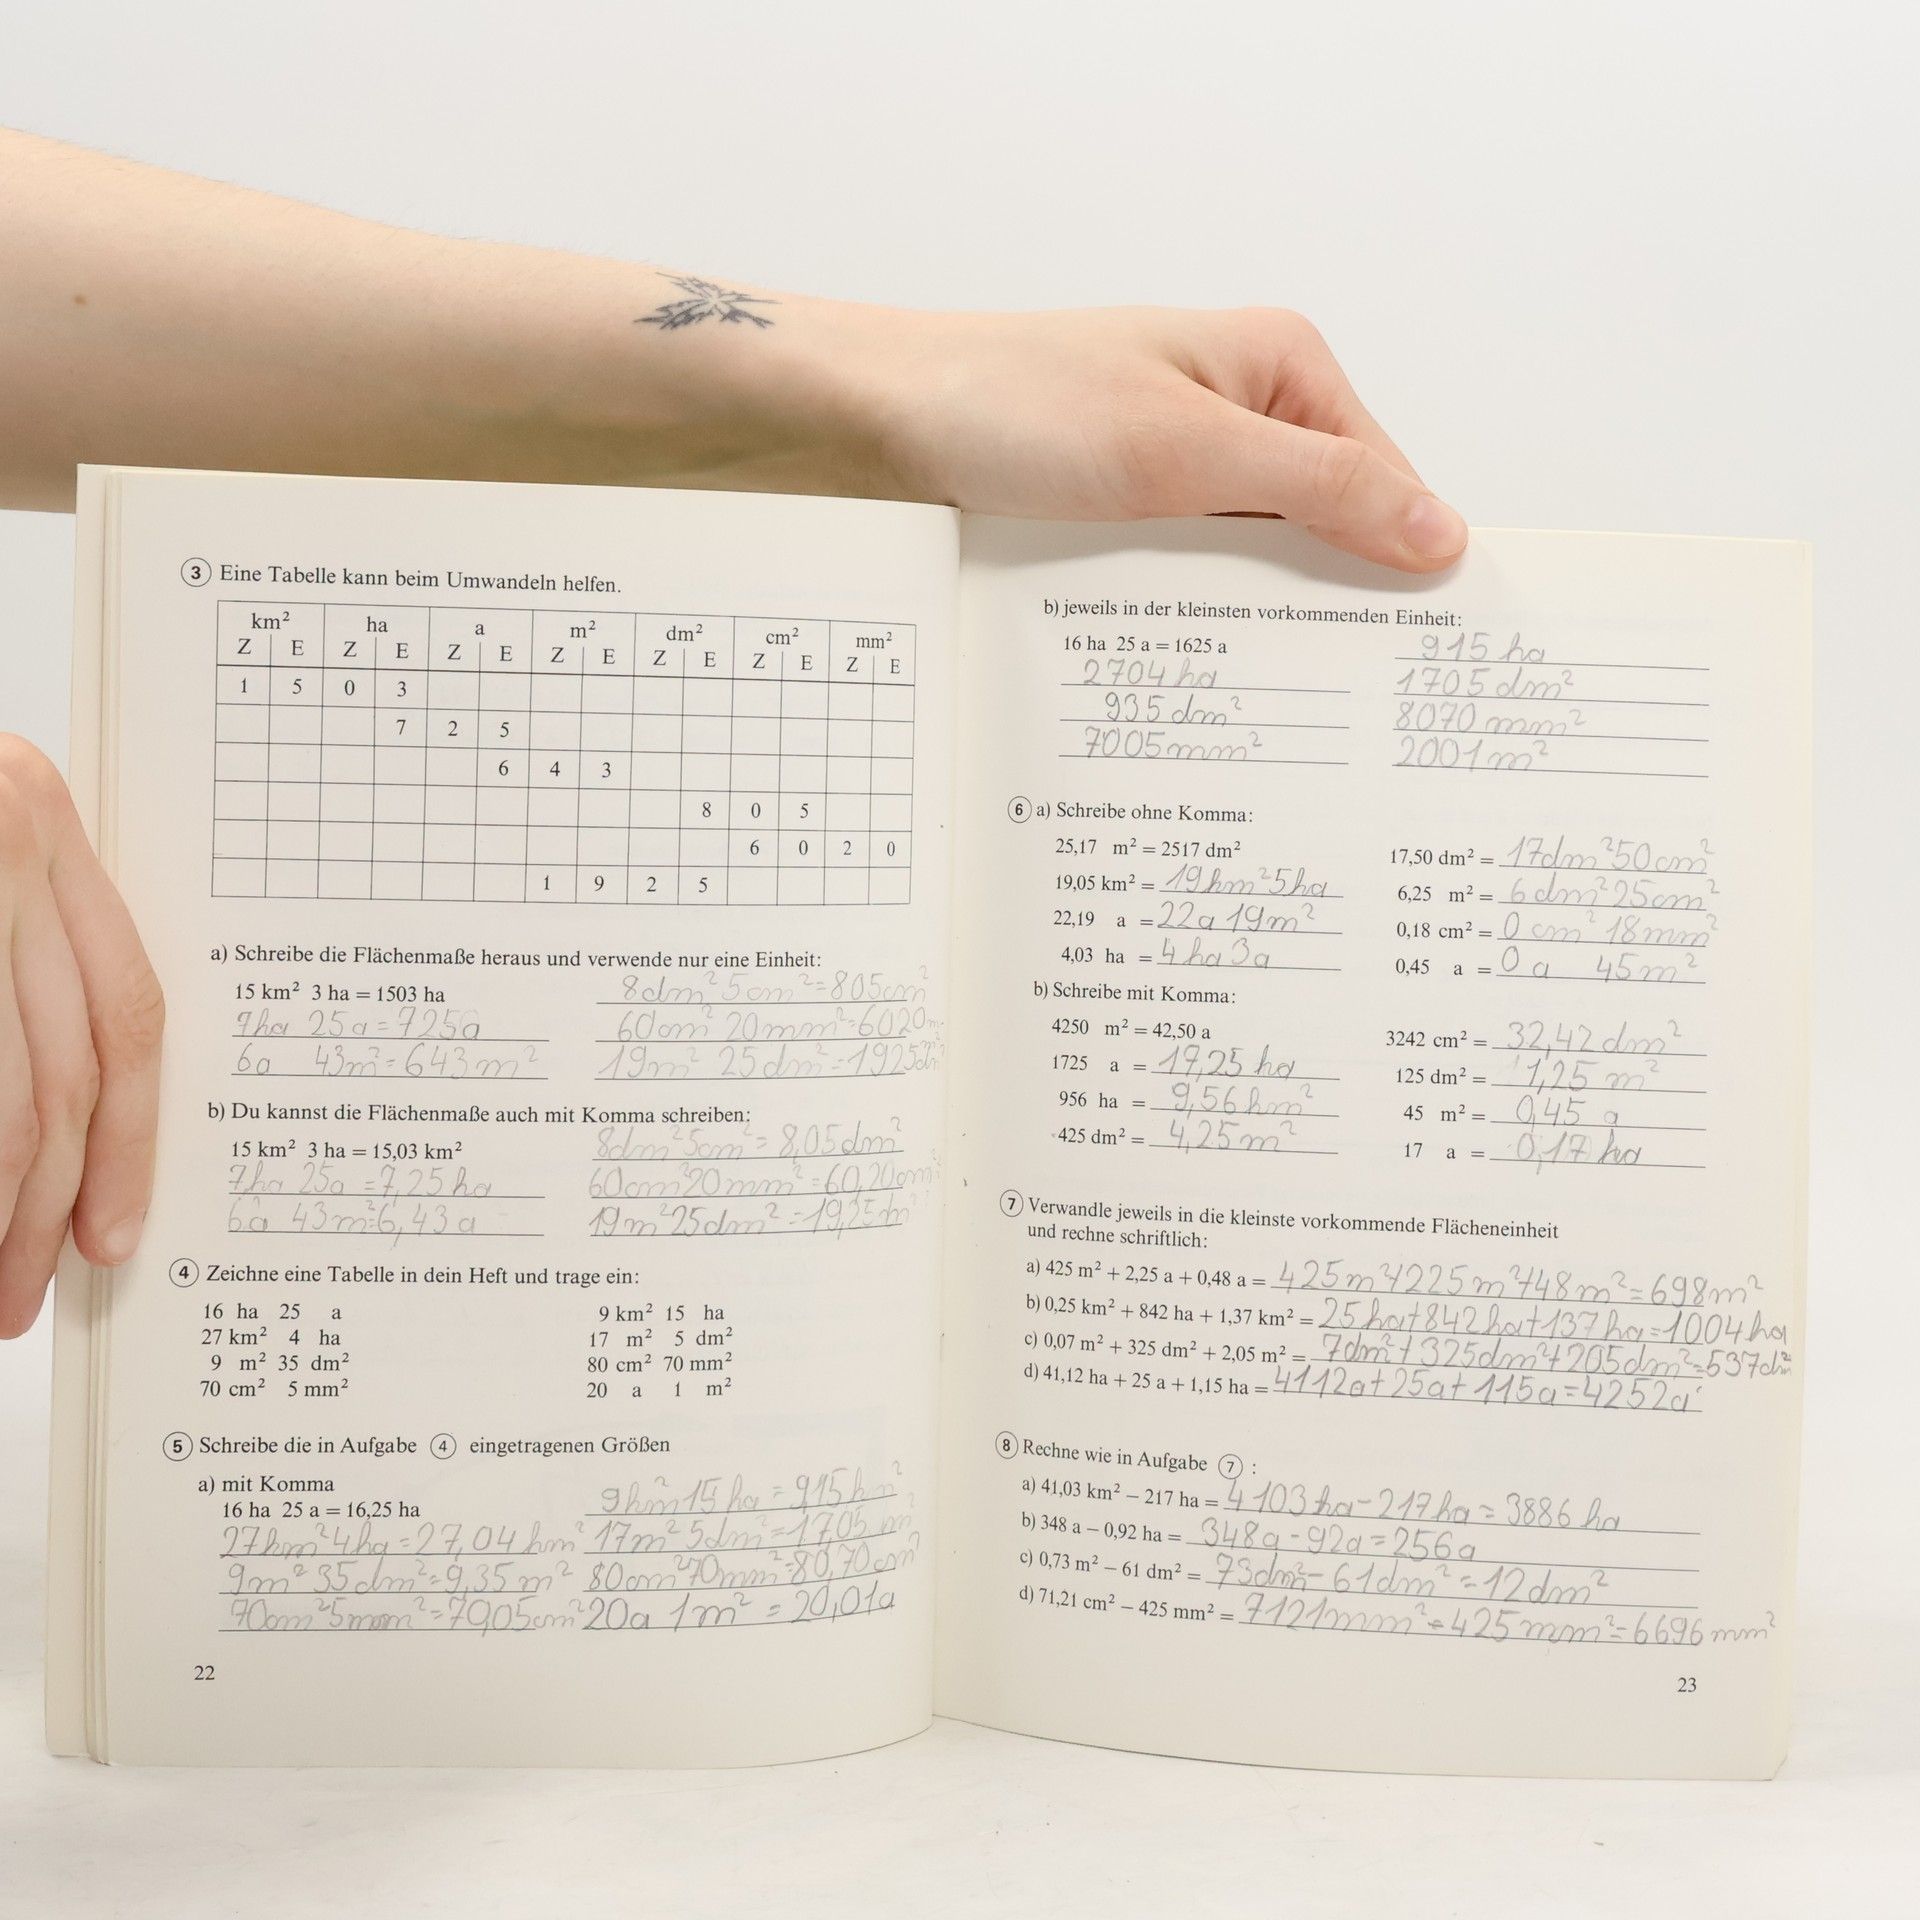 3 Eine Tabelle kann beim Umwandeln helfen.
km² ha a m² dm² cm² mm²
Z E Z E Z E Z E Z E Z E Z E
1 5 0 3
7 2 5
6 4 3
8 0 5
6 0 2 0
1 9 2 5
a) Schreibe die Flächenmaße heraus und verwende nur eine Einheit:
15 km² 3 ha = 1503 ha 8dm² 5cm² = 805cm²
7ha 25a = 725a 60cm² 20mm² = 6020
6a 43m² = 643m² 19m² 25dm² = 1925dm²
b) Du kannst die Flächenmaße auch mit Komma schreiben:
15 km² 3 ha = 15,03 km² 8dm² 5cm² = 8,05dm²
7ha 25a = 7,25ha 60cm² 20mm² = 60,20cm²
6a 43m² = 6,43a 19m² 25dm² = 19,25m²
4 Zeichne eine Tabelle in dein Heft und trage ein:
16 ha 25 a 9 km² 15 ha
27 km² 4 ha 17 m² 5 dm²
9 m² 35 dm² 80 cm² 70 mm²
70 cm² 5 mm² 20 a 1 m²
5 Schreibe die in Aufgabe 4 eingetragenen Größen
a) mit Komma
16 ha 25 a = 16,25 ha 9km² 15ha = 9,15km²
27km² 4ha = 27,04km² 17m² 5dm² = 17,05m²
9m² 35dm² = 9,35m² 80cm² 70mm² = 80,70cm²
70cm² 5mm² = 70,05cm² 20a 1m² = 20,01a
22
b) jeweils in der kleinsten vorkommenden Einheit:
16 ha 25 a = 1625 a 915 ha
2704 ha 1705 dm²
935 dm² 8070 mm²
7005mm² 2001 m²
6 a) Schreibe ohne Komma:
25,17 m² = 2517 dm² 17,50 dm² = 17dm² 50cm²
19,05 km² = 19km² 5ha 6,25 m² = 6dm² 25cm²
22,19 a = 22a 19m² 0,18 cm² = 0cm² 18mm²
4,03 ha = 4ha 3a 0,45 a = 0a 45m²
b) Schreibe mit Komma:
4250 m² = 42,50 a 3242 cm² = 32,42dm²
1725 a = 17,25 ha 125 dm² = 1,25 m²
956 ha = 9,56km² 45 m² = 0,45 a
425 dm² = 4,25m² 17 a = 0,17 ha
7 Verwandle jeweils in die kleinste vorkommende Flächeneinheit
und rechne schriftlich:
a) 425 m² + 2,25 a + 0,48 a = 425m²+225m²+48m²=698m²
b) 0,25 km² + 842 ha + 1,37 km² = 25ha+842ha+137ha=1004ha
c) 0,07 m² + 325 dm² + 2,05 m² = 7dm²+325dm²+205dm²=537dm²
d) 41,12 ha + 25 a + 1,15 ha = 4112a+25a+115a=4252a
8 Rechne wie in Aufgabe 7 :
a) 41,03 km² – 217 ha = 4103ha-217ha = 3886 ha
b) 348 a – 0,92 ha = 348a-92a=256a
c) 0,73 m² – 61 dm² = 73dm²-61dm²=12dm²
d) 71,21 cm² – 425 mm² = 7121mm²-425mm²=6696mm²
23